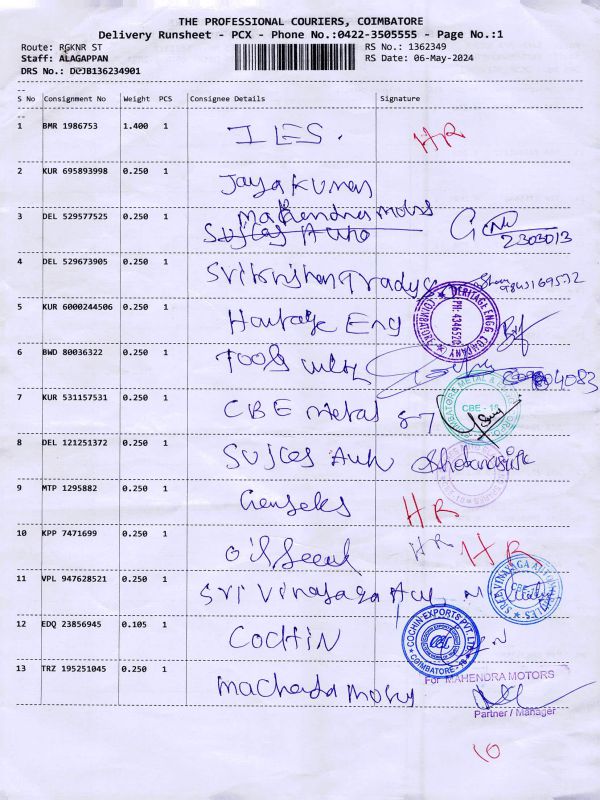 THE PROFESSIONAL COURIERS, COIMBATORE
Delivery Runsheet - PCX - Phone No.:0422-3505555 - Page No.:1
Route: RGKNR ST RS No.: 1362349
Staff: ALAGAPPAN RS Date: 06-May-2024
DRS No.: DCJB136234901
S No Consignment No Weight PCS Consignee Details Signature
1 BMR 1986753 1.400 1 IES. HR
2 KUR 695893998 0.250 1 Jayakumar
3 DEL 529577525 0.250 1 Mahendra motors
Sujles Auto 2303013
4 DEL 529673905 0.250 1 9843169572
5 KUR 6000244506 0.250 1 Heritage Eng
HERITAGE ENGG. COMPANY COIMBATORE PH: 4346520
6 BWD 80036322 0.250 1 Tools
7 KUR 531157531 0.250 1 CBE metal
CBE - 18
8 DEL 121251372 0.250 1 Sujles Auto
9 MTP 1295882 0.250 1 HR
10 KPP 7471699 0.250 1 Oil Seal HR HR
11 VPL 947628521 0.250 1 Sri Vinayaga
12 EDQ 23856945 0.105 1 COCHIN
COCHIN EXPORTS PVT. LTD. COIMBATORE - 18
13 TRZ 195251045 0.250 1
For MAHENDRA MOTORS
Partner / Manager
10